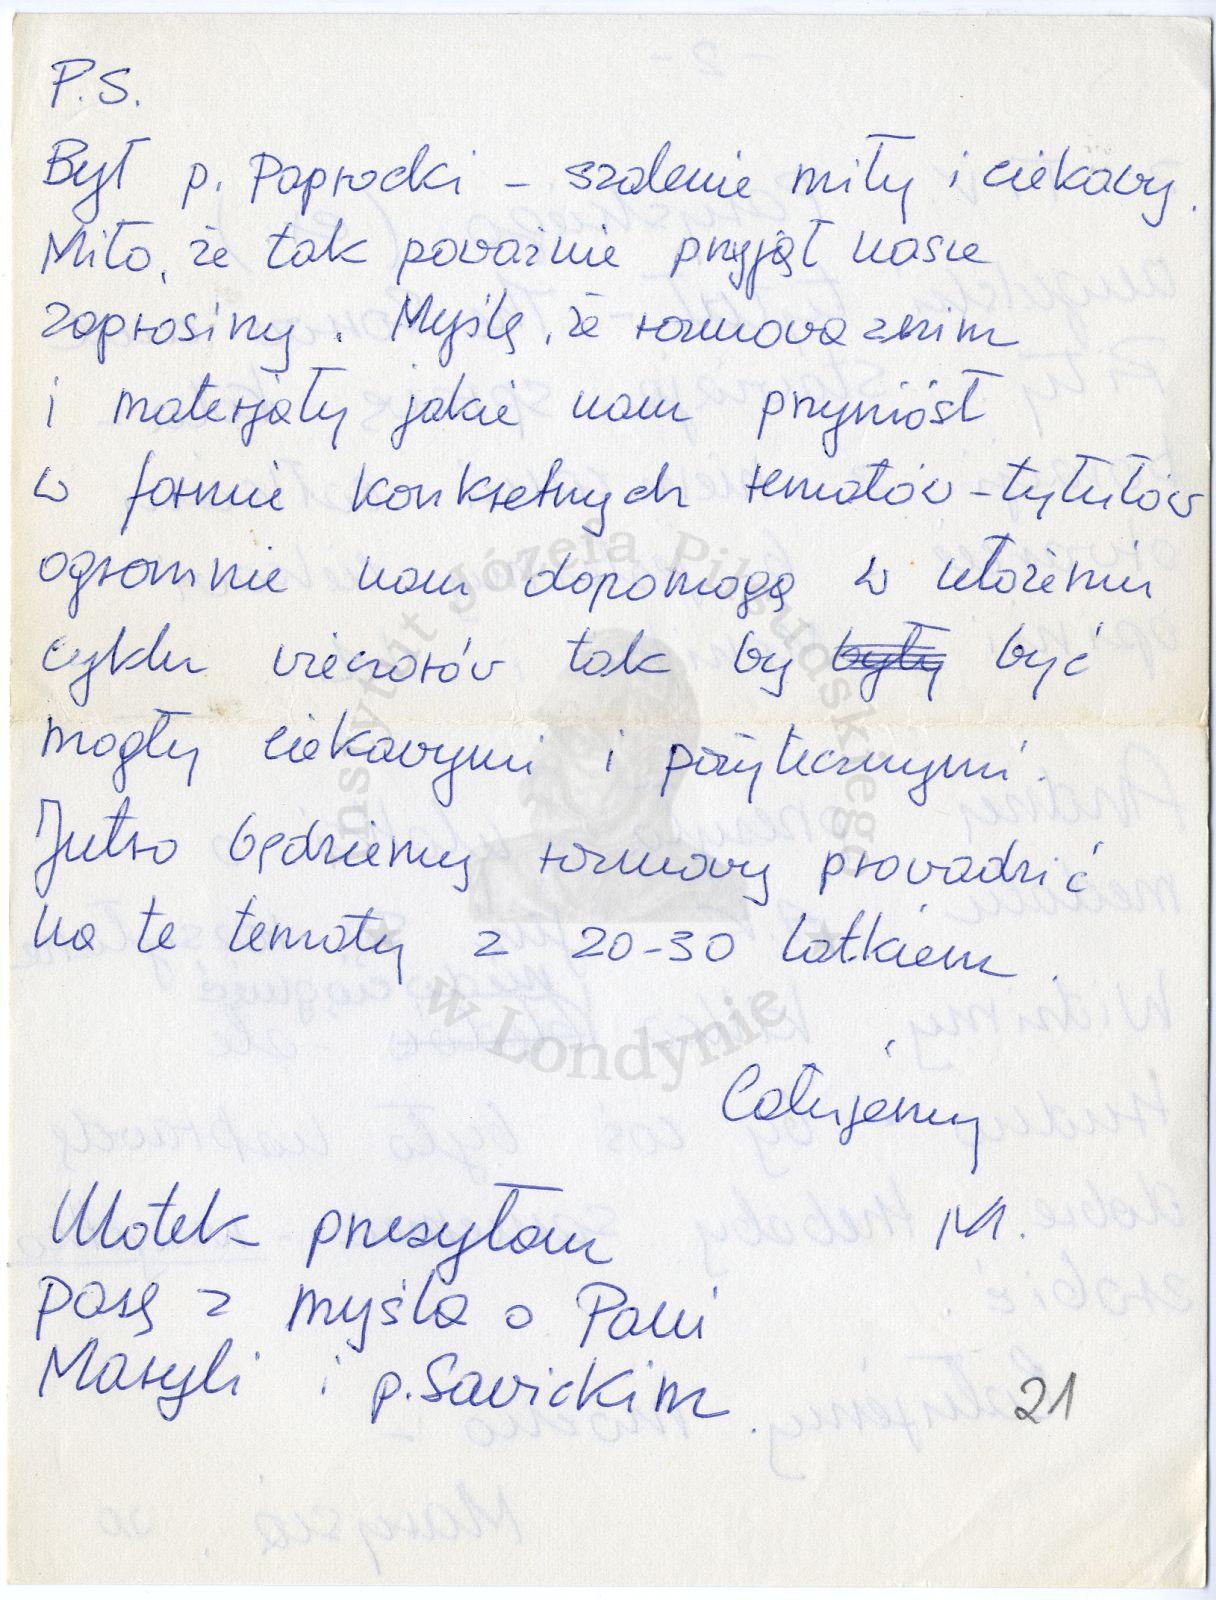 P.S.
Był p. Paprocki – szalenie miły i ciekawy.
Miło, że tak poważnie przyjął nasze
zaprosiny. Myślę, że rozmowa z nim
i materjały jakie nam przyniósł
w formie konkretnych tematów-tytułów
ogromnie nam dopomogą w ułożeniu
cyklu wieczorów tak by były być
mogły ciekawymi i pożytecznymi.
Jutro będziemy rozmowy prowadzić
na te tematy z 20-30 latkiem.
Całujemy
M.
przesyłam
pasę z myślą o Pani
Maryli i p. Sawickim.
21
Instytut Józefa Piłsudskiego
w Londynie